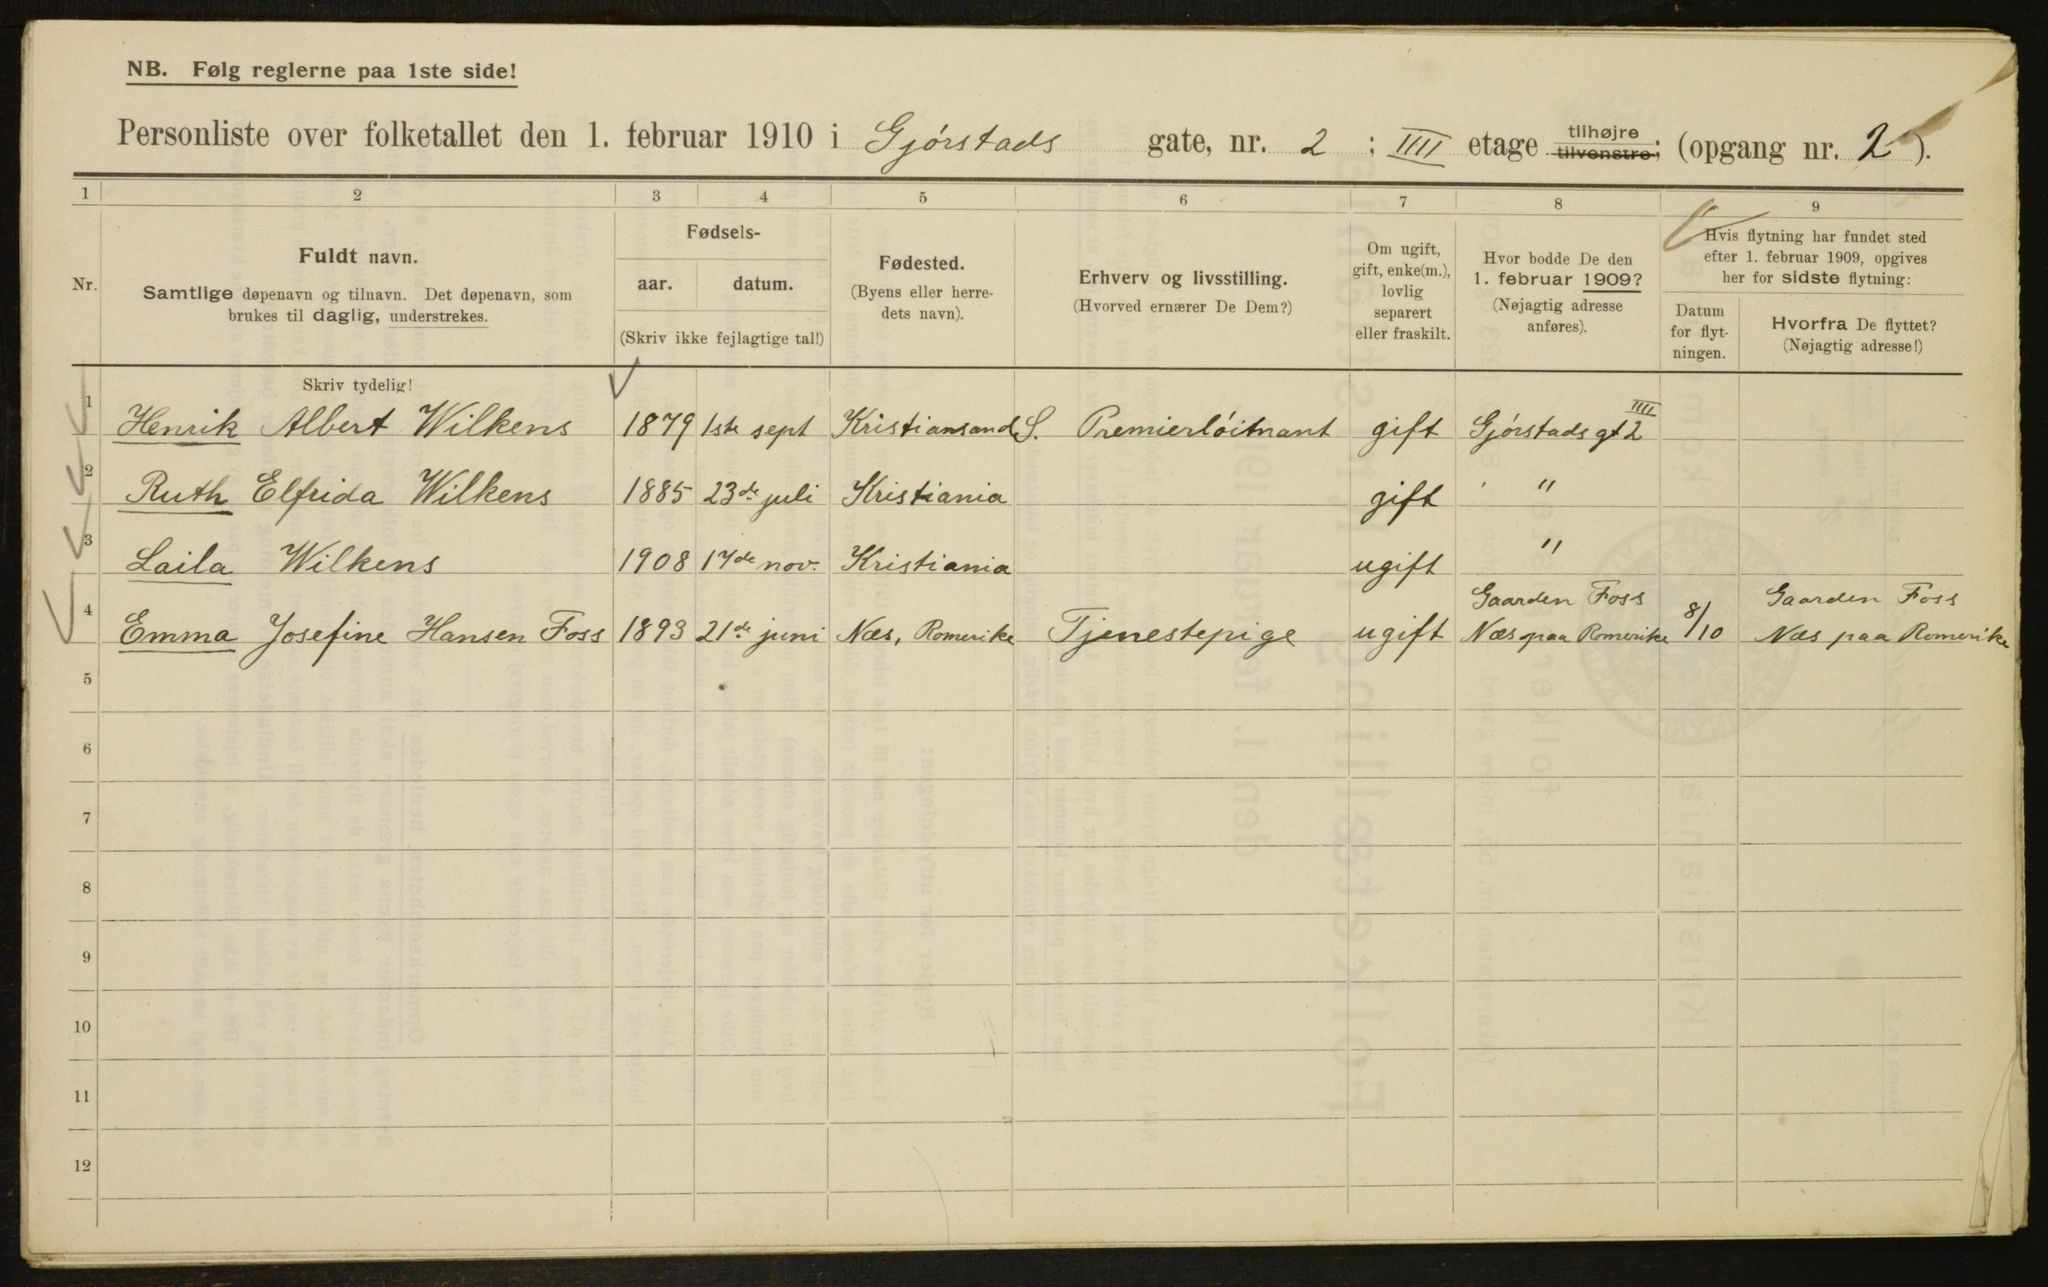 NB. Følg reglerne paa 1ste side!
Personliste over folketallet den 1. februar 1910 i Gjørstads gate, nr. 2 ; IIII etage tilhøjre tilvenstre; (opgang nr. 2 ).
1 2 3 4 5 6 7 8 9
Nr.
Fuldt navn.
Samtlige døpenavn og tilnavn. Det døpenavn, som
brukes til daglig, understrekes.
Fødsels-
aar. datum.
(Skriv ikke fejlagtige tal!)
Fødested.
(Byens eller herre-
dets navn).
Erhverv og livsstilling.
(Hvorved ernærer De Dem?)
Om ugift,
gift, enke(m.),
lovlig
separert
eller fraskilt.
Hvor bodde De den
1. februar 1909?
(Nøjagtig adresse
anføres).
Hvis flytning har fundet sted
efter 1. februar 1909, opgives
her for sidste flytning:
Datum
for flyt-
ningen.
Hvorfra De flyttet?
(Nøjagtig adresse!)
Skriv tydelig!
1 Henrik Albert Wilkens 1879 1ste sept Kristiansand S. Premierløitnant gift Gjørstads gt 2 IIII
2 Ruth Elfrida Wilkens 1885 23de juli Kristiania gift "
3 Laila Wilkens 1908 17de nov. Kristiania ugift "
4 Emma Josefine Hansen Foss 1893 21de juni Næs, Romerike Tjenestepige ugift Gaarden Foss Næs paa Romerike 8/10 Gaarden Foss Næs paa Romerike
5
6
7
8
9
10
11
12